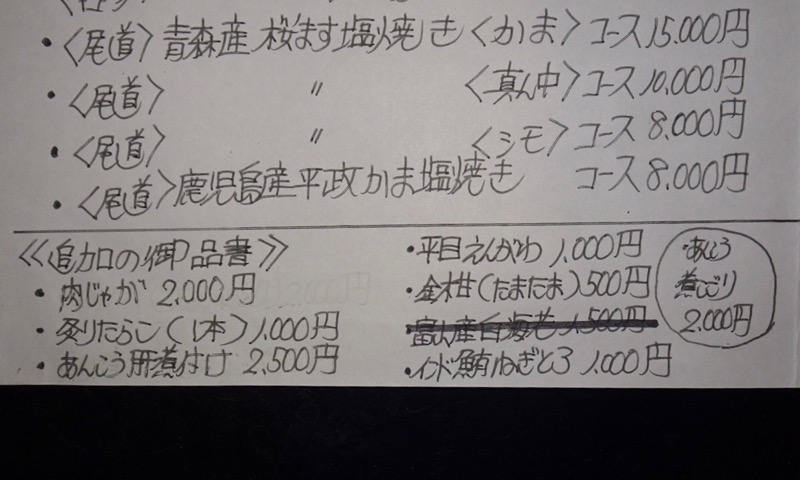 ・〈尾道〉青森産 桜ます塩焼き〈かま〉コース 15.000円
・〈尾道〉 〃 〈真ん中〉コース 10,000円
・〈尾道〉 〃 〈シモ〉コース 8.000円
・〈尾道〉鹿児島産平政かま塩焼き コース 8,000円
《追加の御品書》
・肉じゃが 2,000円
・炙りたらこ(1本) 1,000円
・あんこう肝煮付け 2,500円
・平目えんがわ 1,000円
・金柑(たまたま) 500円
・富山産白海老 1,500円
・インド鮪ねぎとろ 1,000円
・あんこう
煮こごり
2,000円